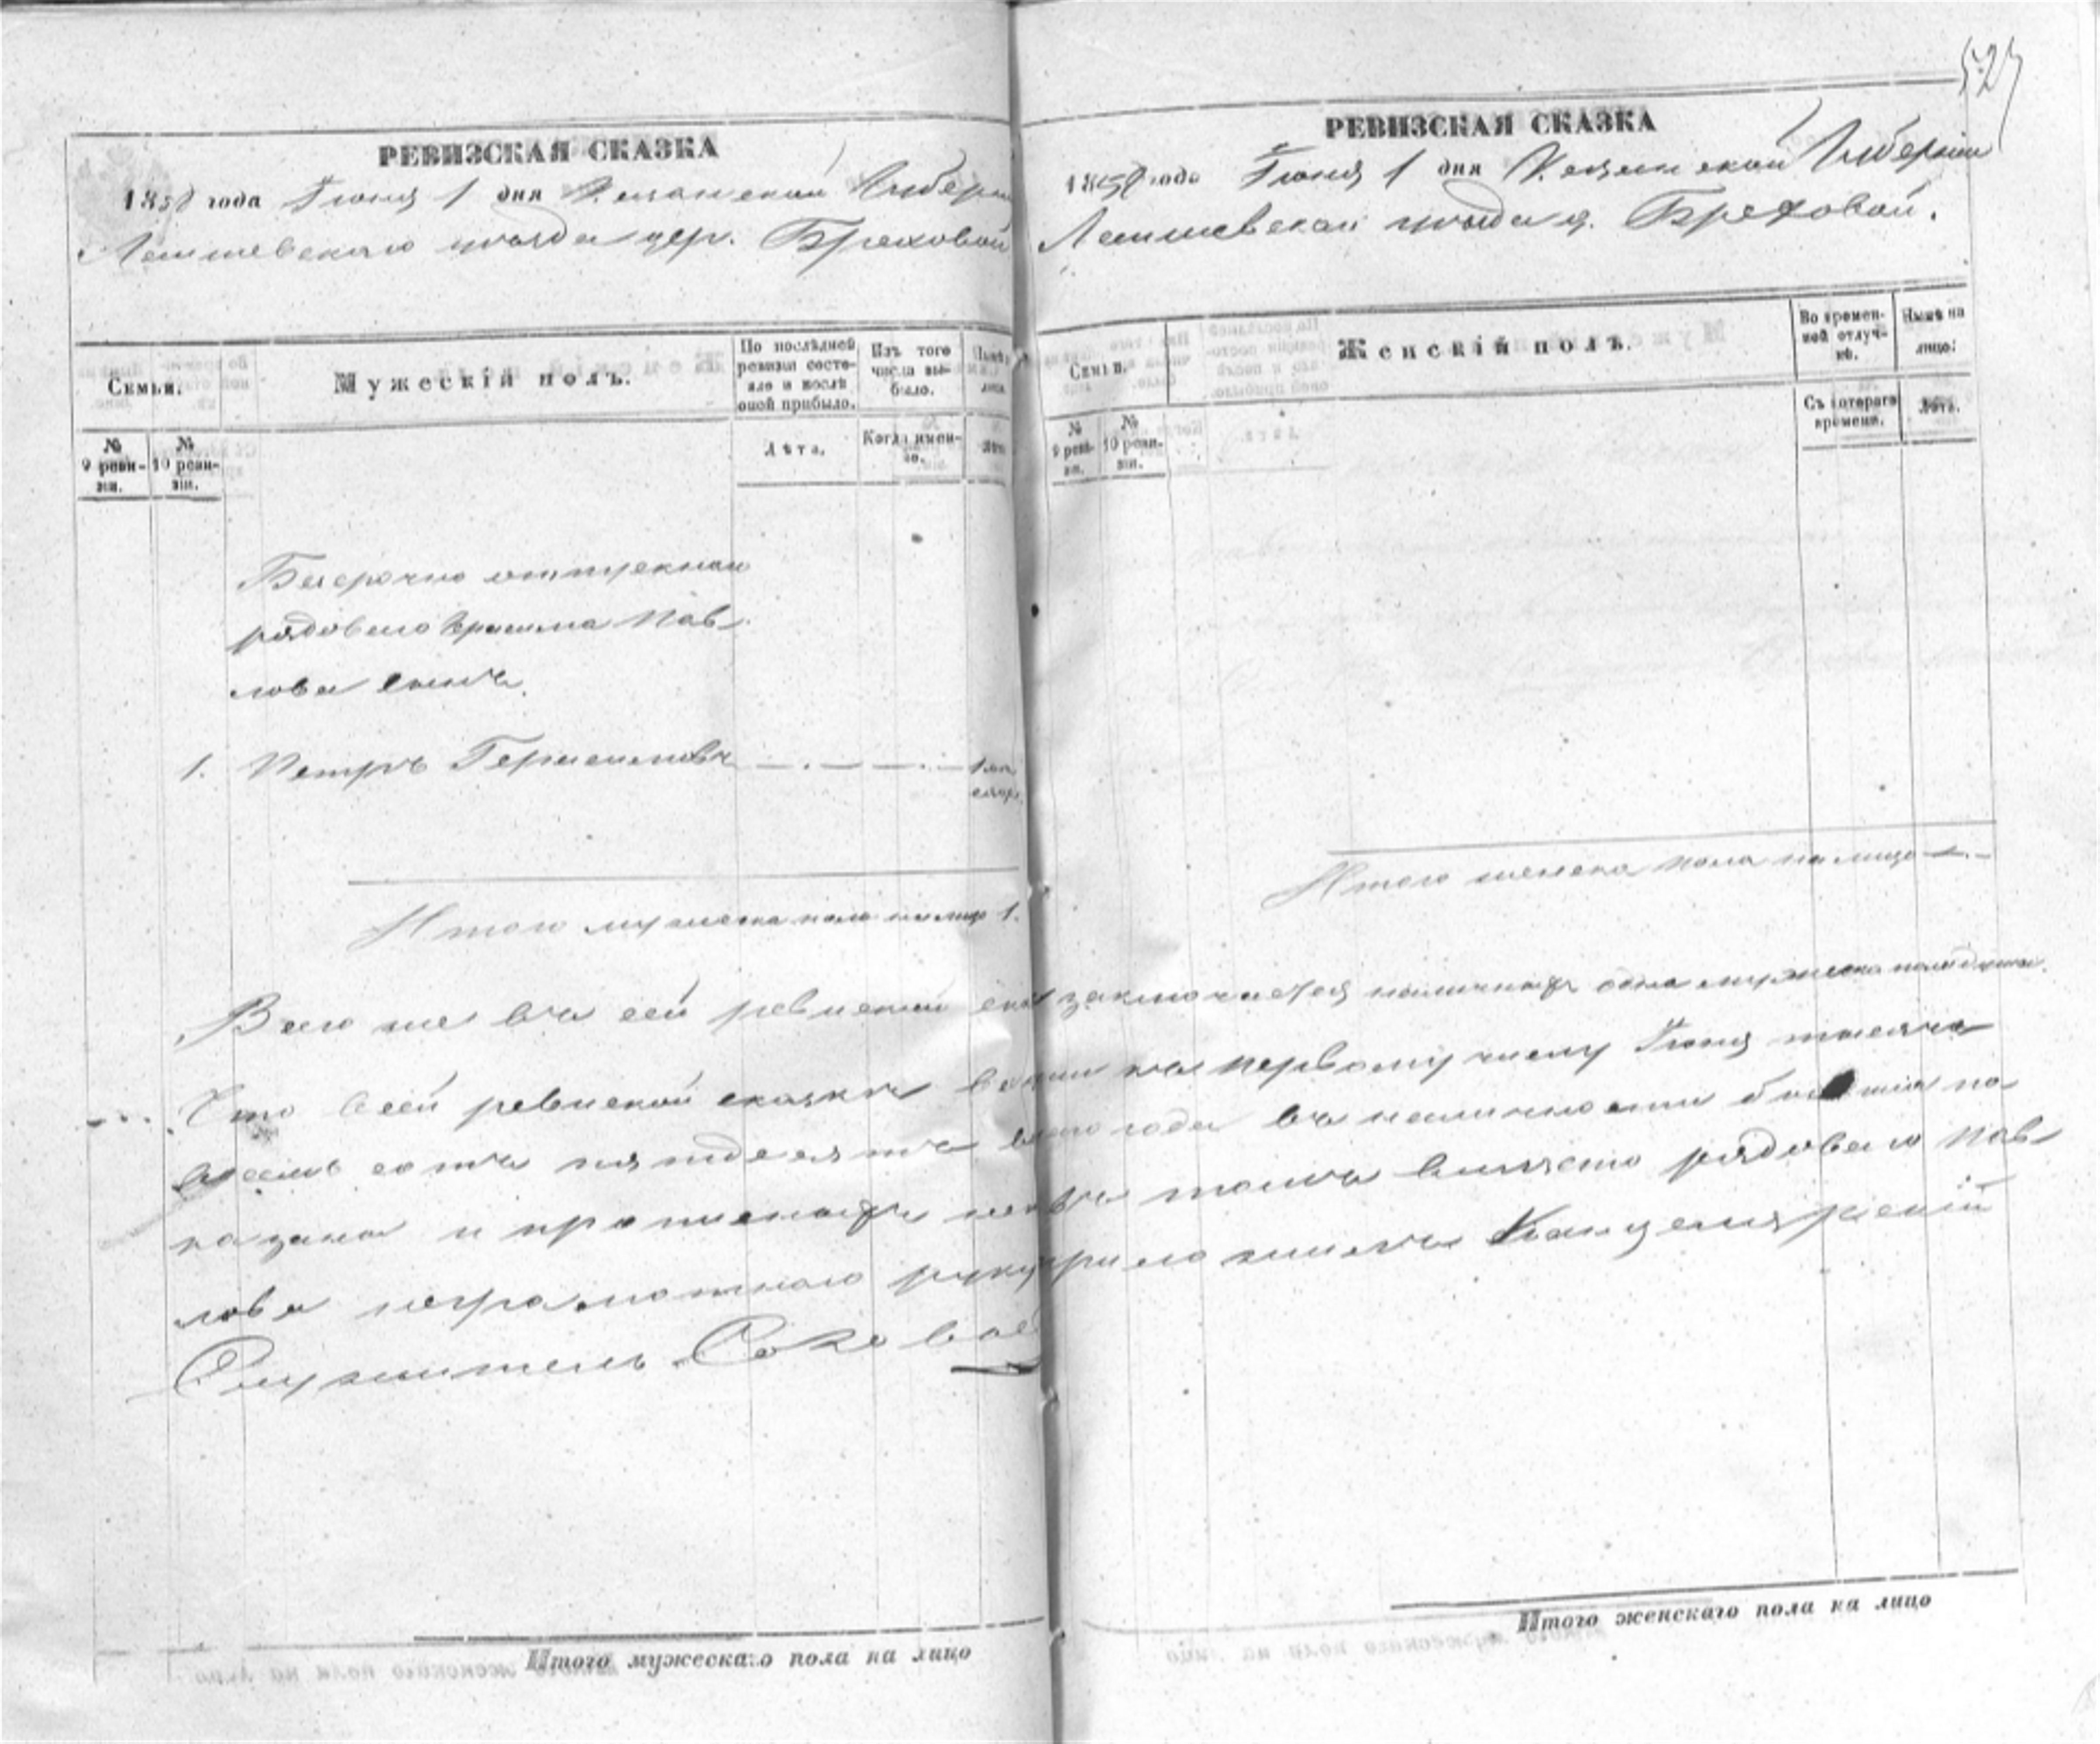 527
РЕВИЗСКАЯ СКАЗКА
1858 года Іюня 1 дня Казанской Губерніи
Лаишевскаго уѣзда дер. Бреховой
Семьи.
Мужескій полъ.
По послѣдней ревизіи состояло и послѣ оной прибыло.
Изъ того числа выбыло.
№ 9 ревизіи.
№ 10 ревизіи.
Лѣта.
Когда именно.
Безсрочно отпускнаго
рядоваго Герасима Пав-
лова сынъ
1. Петръ Герасимовъ
Итого мужеска пола на лицо 1.
РЕВИЗСКАЯ СКАЗКА
1858 года Іюня 1 дня Казанской Губерніи
Лаишевскаго уѣзда д. Бреховой.
Семьи.
Женскій полъ.
Во временной отлучкѣ.
Нынѣ на лицо:
№ 9 ревизіи.
№ 10 ревизіи.
Съ котораго времени.
Лѣта.
Итого женска пола на лицо —
Всего же въ сей ревизской заключается наличныхъ одна мужеска пола душа.
Что въ сей ревизской сказкѣ къ первому числу Іюня тысяча
восемь сотъ пятдесятъ года въ наличности по-
казана и прописныхъ нѣтъ въ томъ вмѣсто рядоваго Пав-
лова неграмотнаго руку приложилъ Канцелярскій
Служитель
Итого мужескаго пола на лицо
Итого женскаго пола на лицо